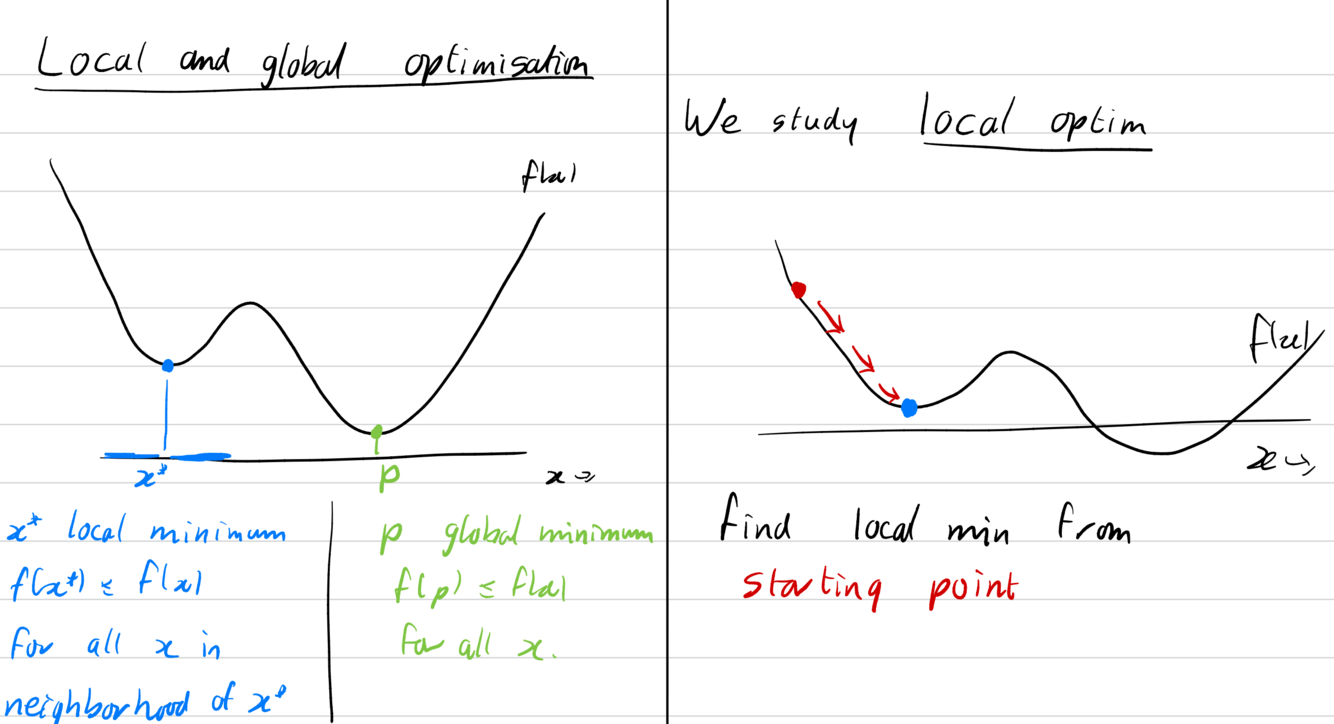 Local and global optimisation
f(x)
x* p x →
x* local minimum
f(x*) ≤ f(x)
for all x in
neighborhood of x*
p global minimum
f(p) ≤ f(x)
for all x.
We study local optim
f(x)
x →
find local min from
starting point